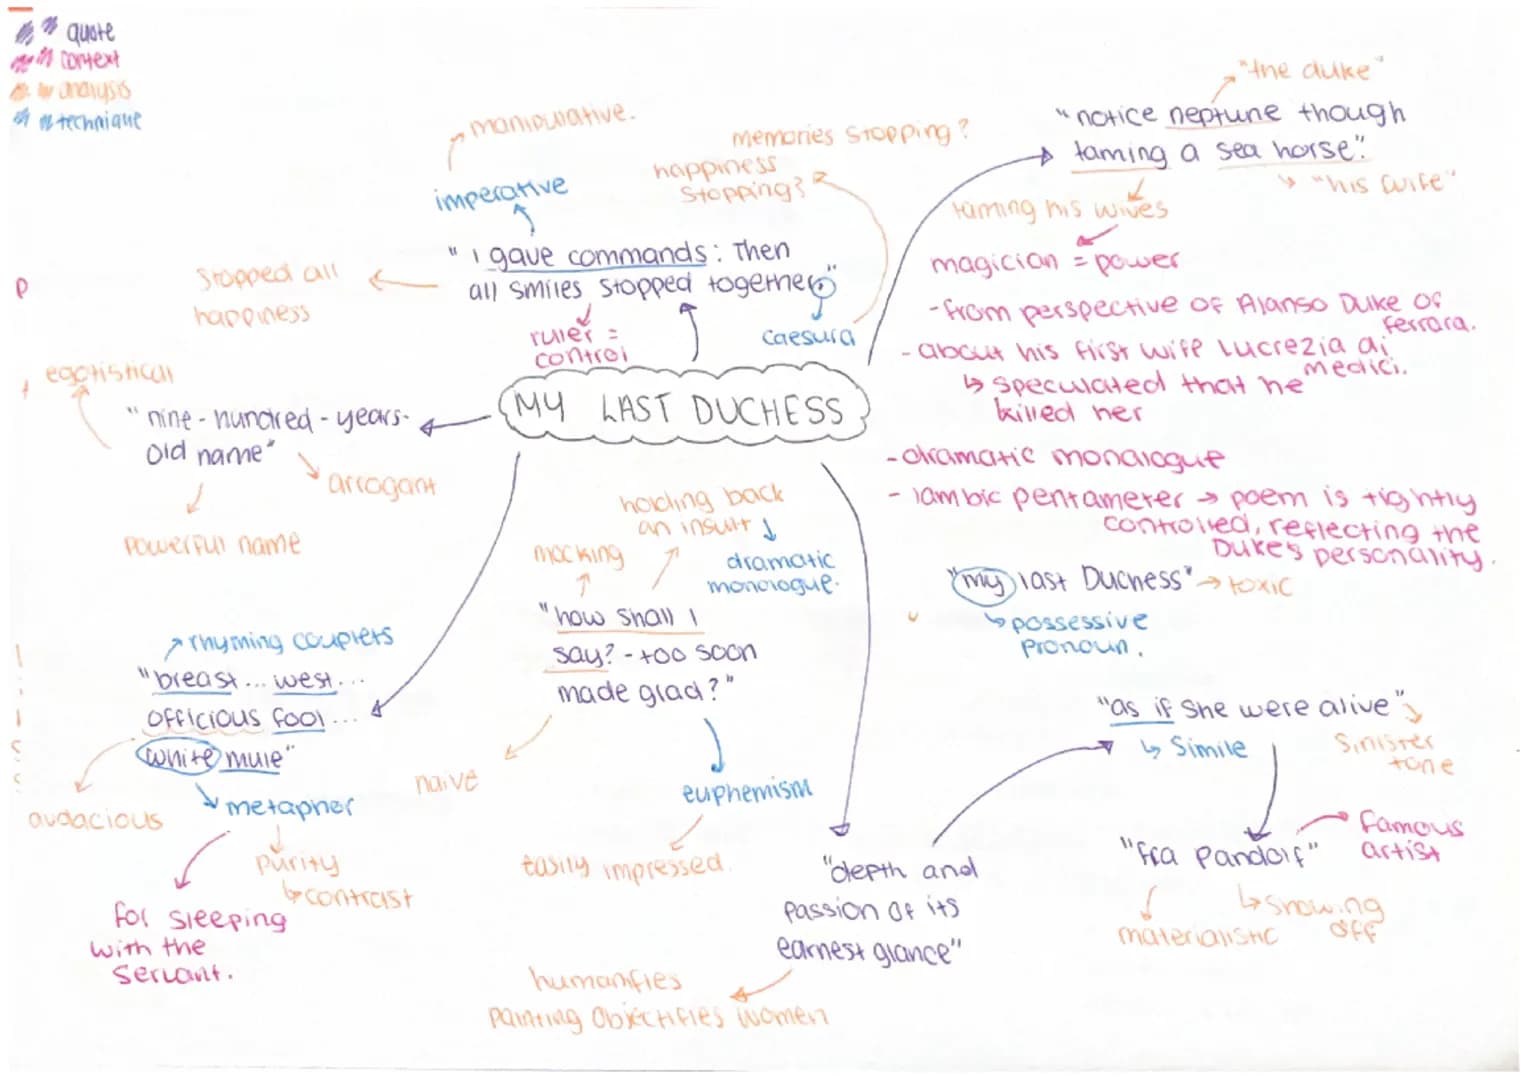 quote
context
analysis
technique
manipulative.
imperative
memories stopping?
happiness
stopping?
"I gave commands: Then
all smiles stopped together"
stopped all
happiness
ruler =
control
caesura
"the duke"
"notice neptune though
taming a sea horse."
"his wife"
taming his wives
magician = power
- from perspective of Alanso Duke of
ferrara.
- about his first wife Lucrezia di
medici.
↳ speculated that he
killed her
- dramatic monologue
- Iambic pentameter → poem is tightly
controlled, reflecting the
Duke's personality.
"my last Duchess" → toxic
↳ possessive
pronoun.
P
egotistical
"nine-hundred-years-
old name"
arrogant
powerful name
MY LAST DUCHESS
holding back
an insult
mocking
dramatic
monologue.
"how shall I
say? - too soon
made glad?"
naive
euphemism
easily impressed.
rhyming couplets
"breast... west...
officious fool...
white mule"
audacious
metapher
purity
↳ contrast
for sleeping
with the
servant.
"depth and
passion of its
earnest glance"
humanifies
painting objectifies women
"as if she were alive"
↳ Simile
Sinister
tone
"Fra Pandolf"
famous
artist
materialistic
↳ showing
off